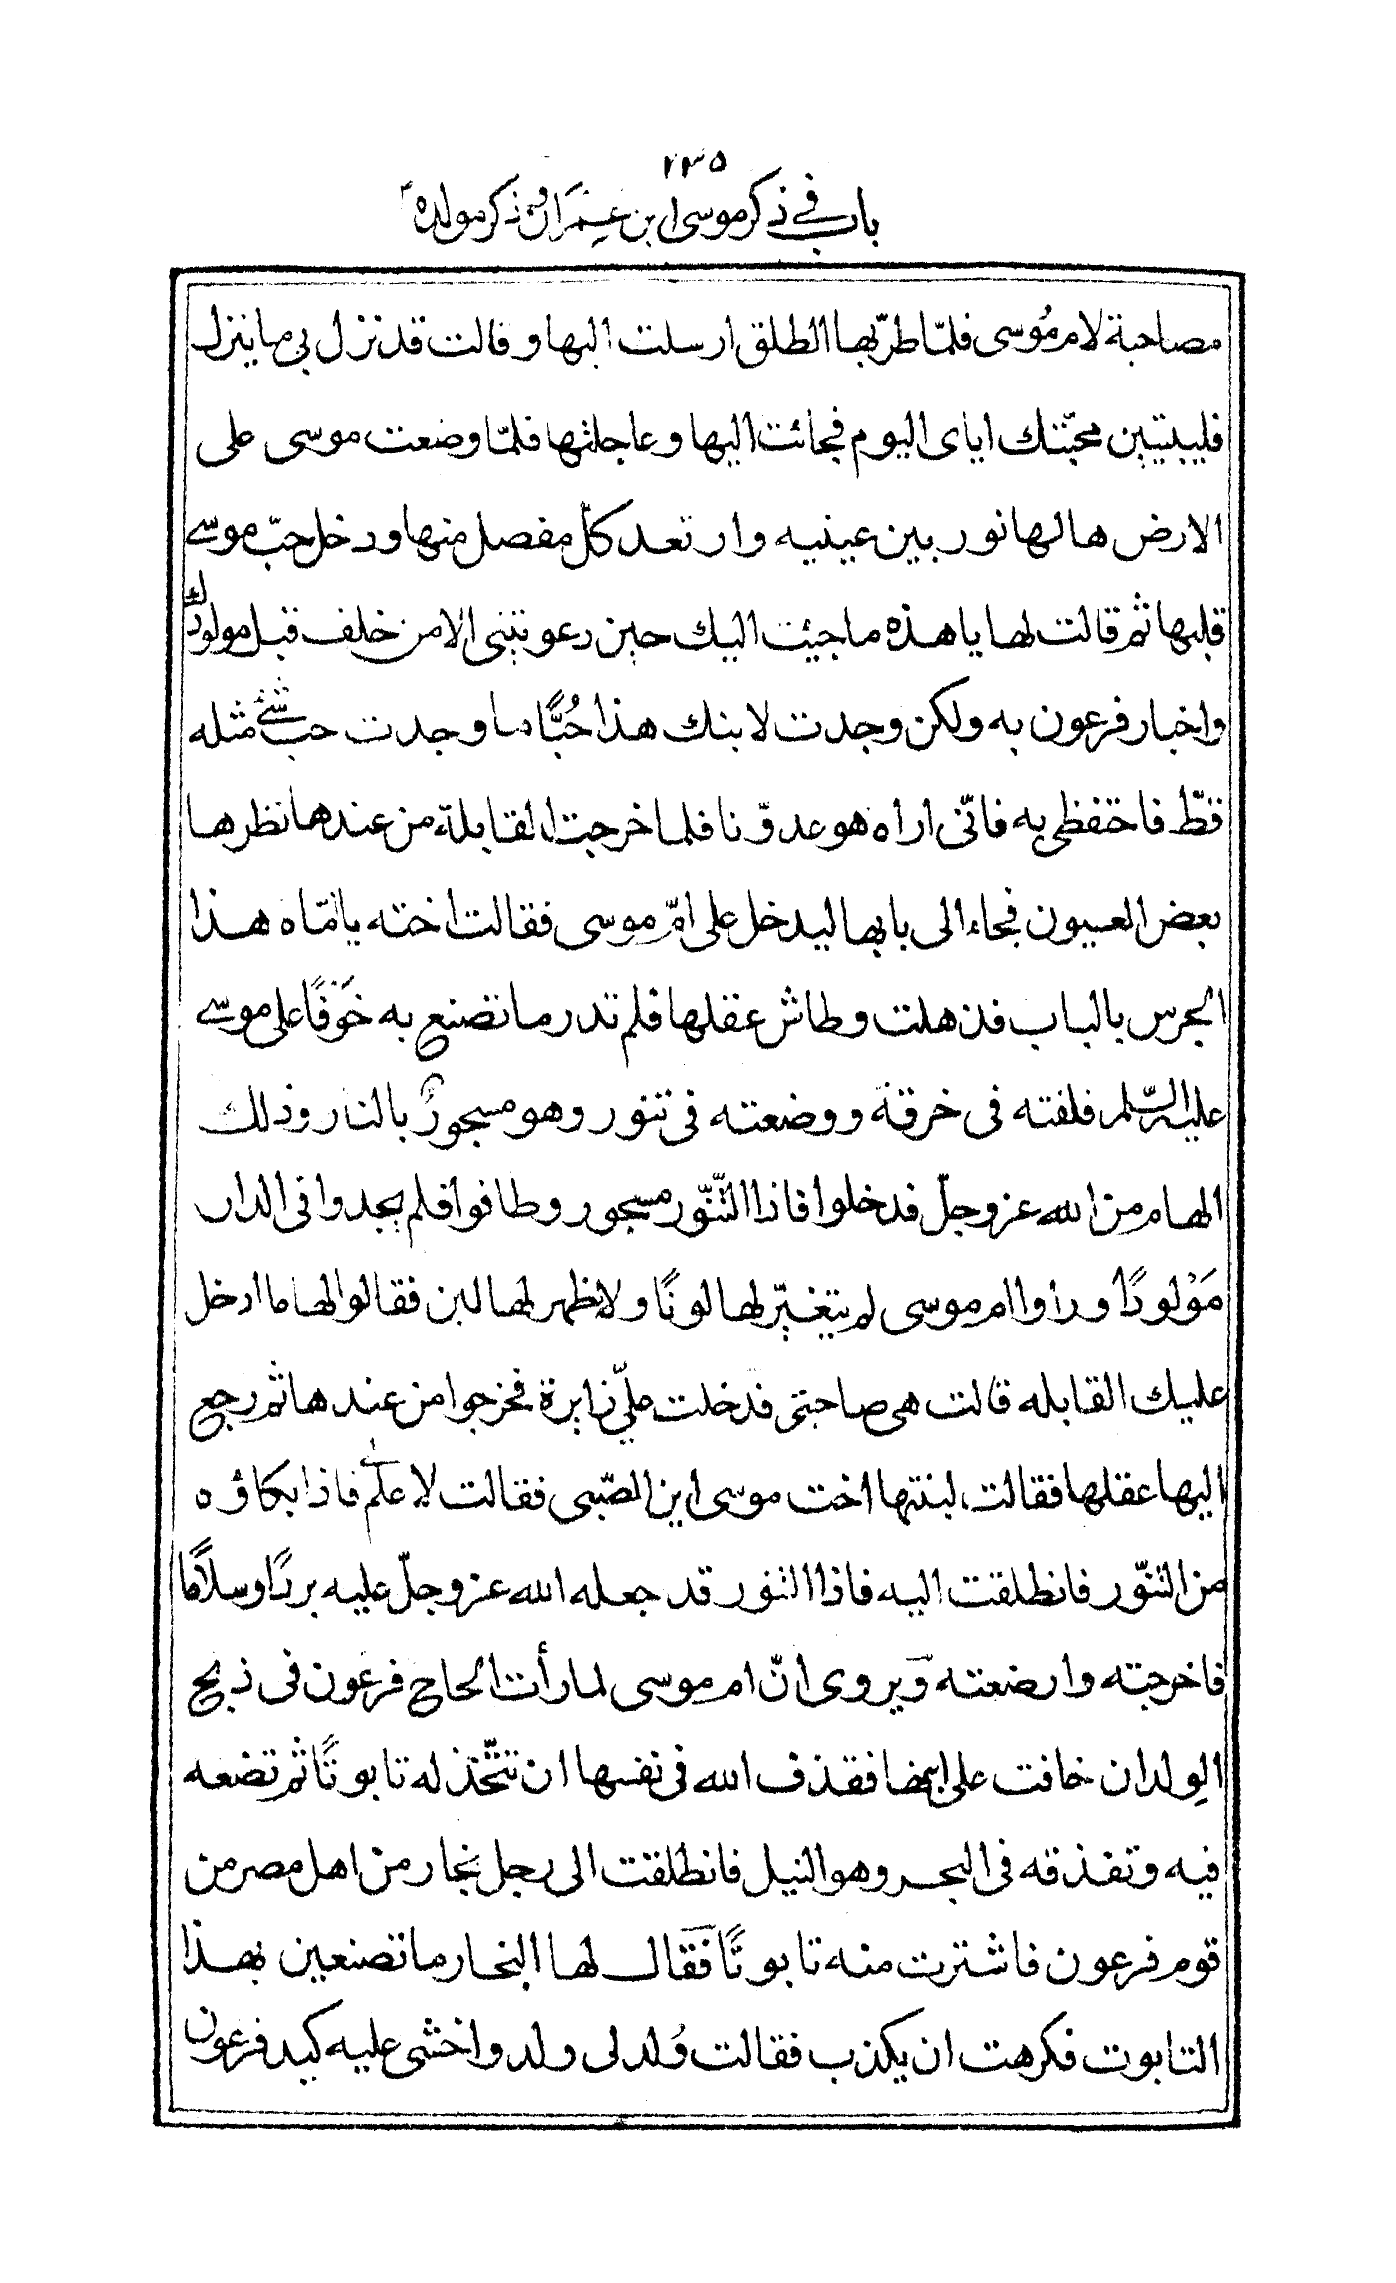 ٢٣٥
باب في ذكر موسى ابن عمران وذكر مولده
مصاحبة لام مُوسى فلمّا طرّ بها الطلق ارسلت اليها وقالت قد نزل بي ما ينزل
فليبتيبن محبّتك اياى اليوم فجائت اليها وعاجلتها فلمّا وضعت موسى على
الارض هالها نور بين عينيه وارتعد كلّ مفصل منها ودخل حبّ موسى
قلبها ثم قالت لها يا هذه ما جيئت اليك حين دعوتينى الا من خلف قبل مولودك
واخبار فرعون به ولكن وجدت لابنك هذا حُبًّا ما وجدت حبّ شئ مثله
قطّ فاحتفظى به فانّى اراه هو عدوّنا فلما خرجت القابلة من عندها نظرها
بعض العيون فجاء الى بابها ليدخل على امّ موسى فقالت اخته ياامّاه هذا
الحرس بالباب فذهلت وطاش عقلها فلم تدر ما تصنع به خَوْفًا على موسى
عليه السّلم فلفته فى خرقة ووضعته فى تنور وهو مسجورٌ بالنار وذلك
الهام من الله عز وجلّ فدخلوا فاذا التّنّور مسجور وطافوا فلم يجدوا فى الدار
مَوْلودًا وراوا ام موسى لم يتغيّر لها لونًا ولا ظهر لها لبن فقالوا لها ما ادخل
عليك القابله قالت هى صاحبتى فدخلت علىّ زايرة فخرجوا من عندها ثم رجع
اليها عقلها فقالت لبنتها اخت موسى اين الصّبى فقالت لا علم لى فاذا بكاؤه
من التنّور فانطلقت اليه فاذا التنور قد جعله الله عز وجلّ عليه بردًا وسلامًا
فاخرجته وارضعته ويروى انّ ام موسى لما رأت الحاح فرعون فى ذبح
الوِلدان خافت على ابنها فقذف الله فى نفسها ان تتّخذ له تابوتًا ثم تضعه
فيه وتقذفه فى البحر وهو النيل فانطلقت الى رجل نجار من اهل مصر من
قوم فرعون فاشترت منه تابوتًا فَقَال لها النجار ما تصنعين بهذا
التابوت فكرهت ان يكذب فقالت وُلد لى ولد واخشى عليه كيد فرعون